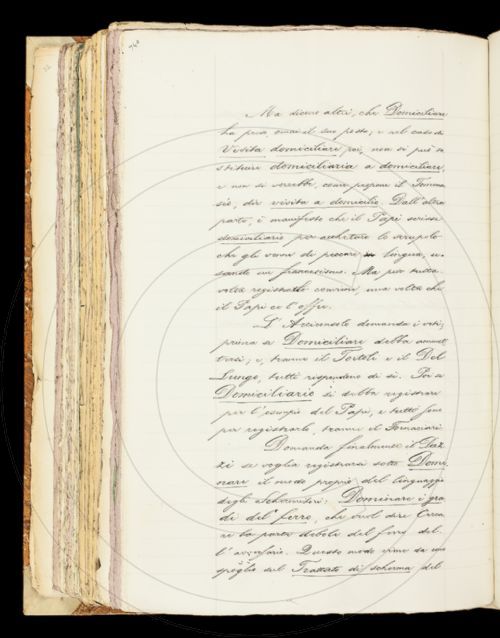 Ma dicono altri, che Domiciliare
ha preso, ormai il suo posto; e nel caso di
Visita domiciliare poi, non si può so
stituire domiciliaria a domiciliare,
e non si direbbe, come propone il Tomma
séo, dir visita a domicilio. Dall'altra
parte, è manifesto che il Papi scrisse
domiciliario per
che gli venne di peccare in lingua, u-
sando un francesismo. Ma pur tutta
volta registrarlo conviene, una volta che
il Papi ce l'offre.
L'Arciconsolo domanda i voti,
prima se Domiciliare debba ammet
tersi; e, tranne il Tortoli e il Del
Lungo, tutti rispondono di sì. Poi se
Domiciliario si debba registrare
per l'esempio del Papi, e tutti sono
per registrarlo, tranne il Fornaciari.
Domanda finalmente il Daz
zi se voglia registrarsi sotto Domi
nare il modo proprio del linguaggio
degli schermitori: Dominare i gra
di del ferro, che vuol dire Cerca
re la parte debole del ferro del
l'avversario. Questo modo viene da uno
spoglio del Trattato di scherma del